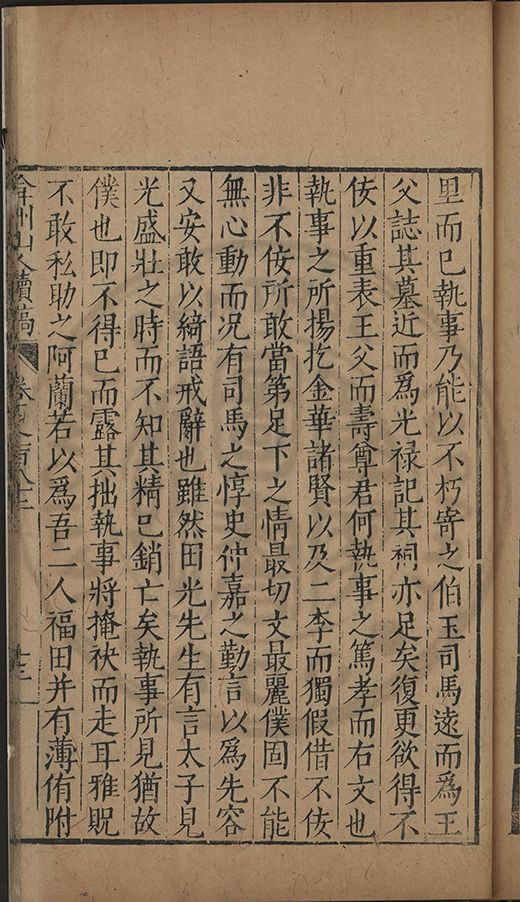 里而已執事乃能以不朽寄之伯玉司馬遠而為王
父誌其墓近而為光禄記其祠亦足矣復更欲得不
佞以重表王父而壽尊君何執事之篤孝而右文也
執事之所揚扢金華諸賢以及二李而獨假借不佞
非不佞所敢當第足下之情最切文最麗僕固不能
無心動而况有司馬之惇史仲嘉之勤言以為先容
又安敢以綺語戒辭也雖然田光先生有言太子見
光盛壯之時而不知其精已銷亡矣執事所見猶故
僕也即不得已而露其拙執事將掩袂而走耳雅貺
不敢私助之阿蘭若以為吾二人福田并有薄侑附
弇州山人續稿 卷之一百八十二